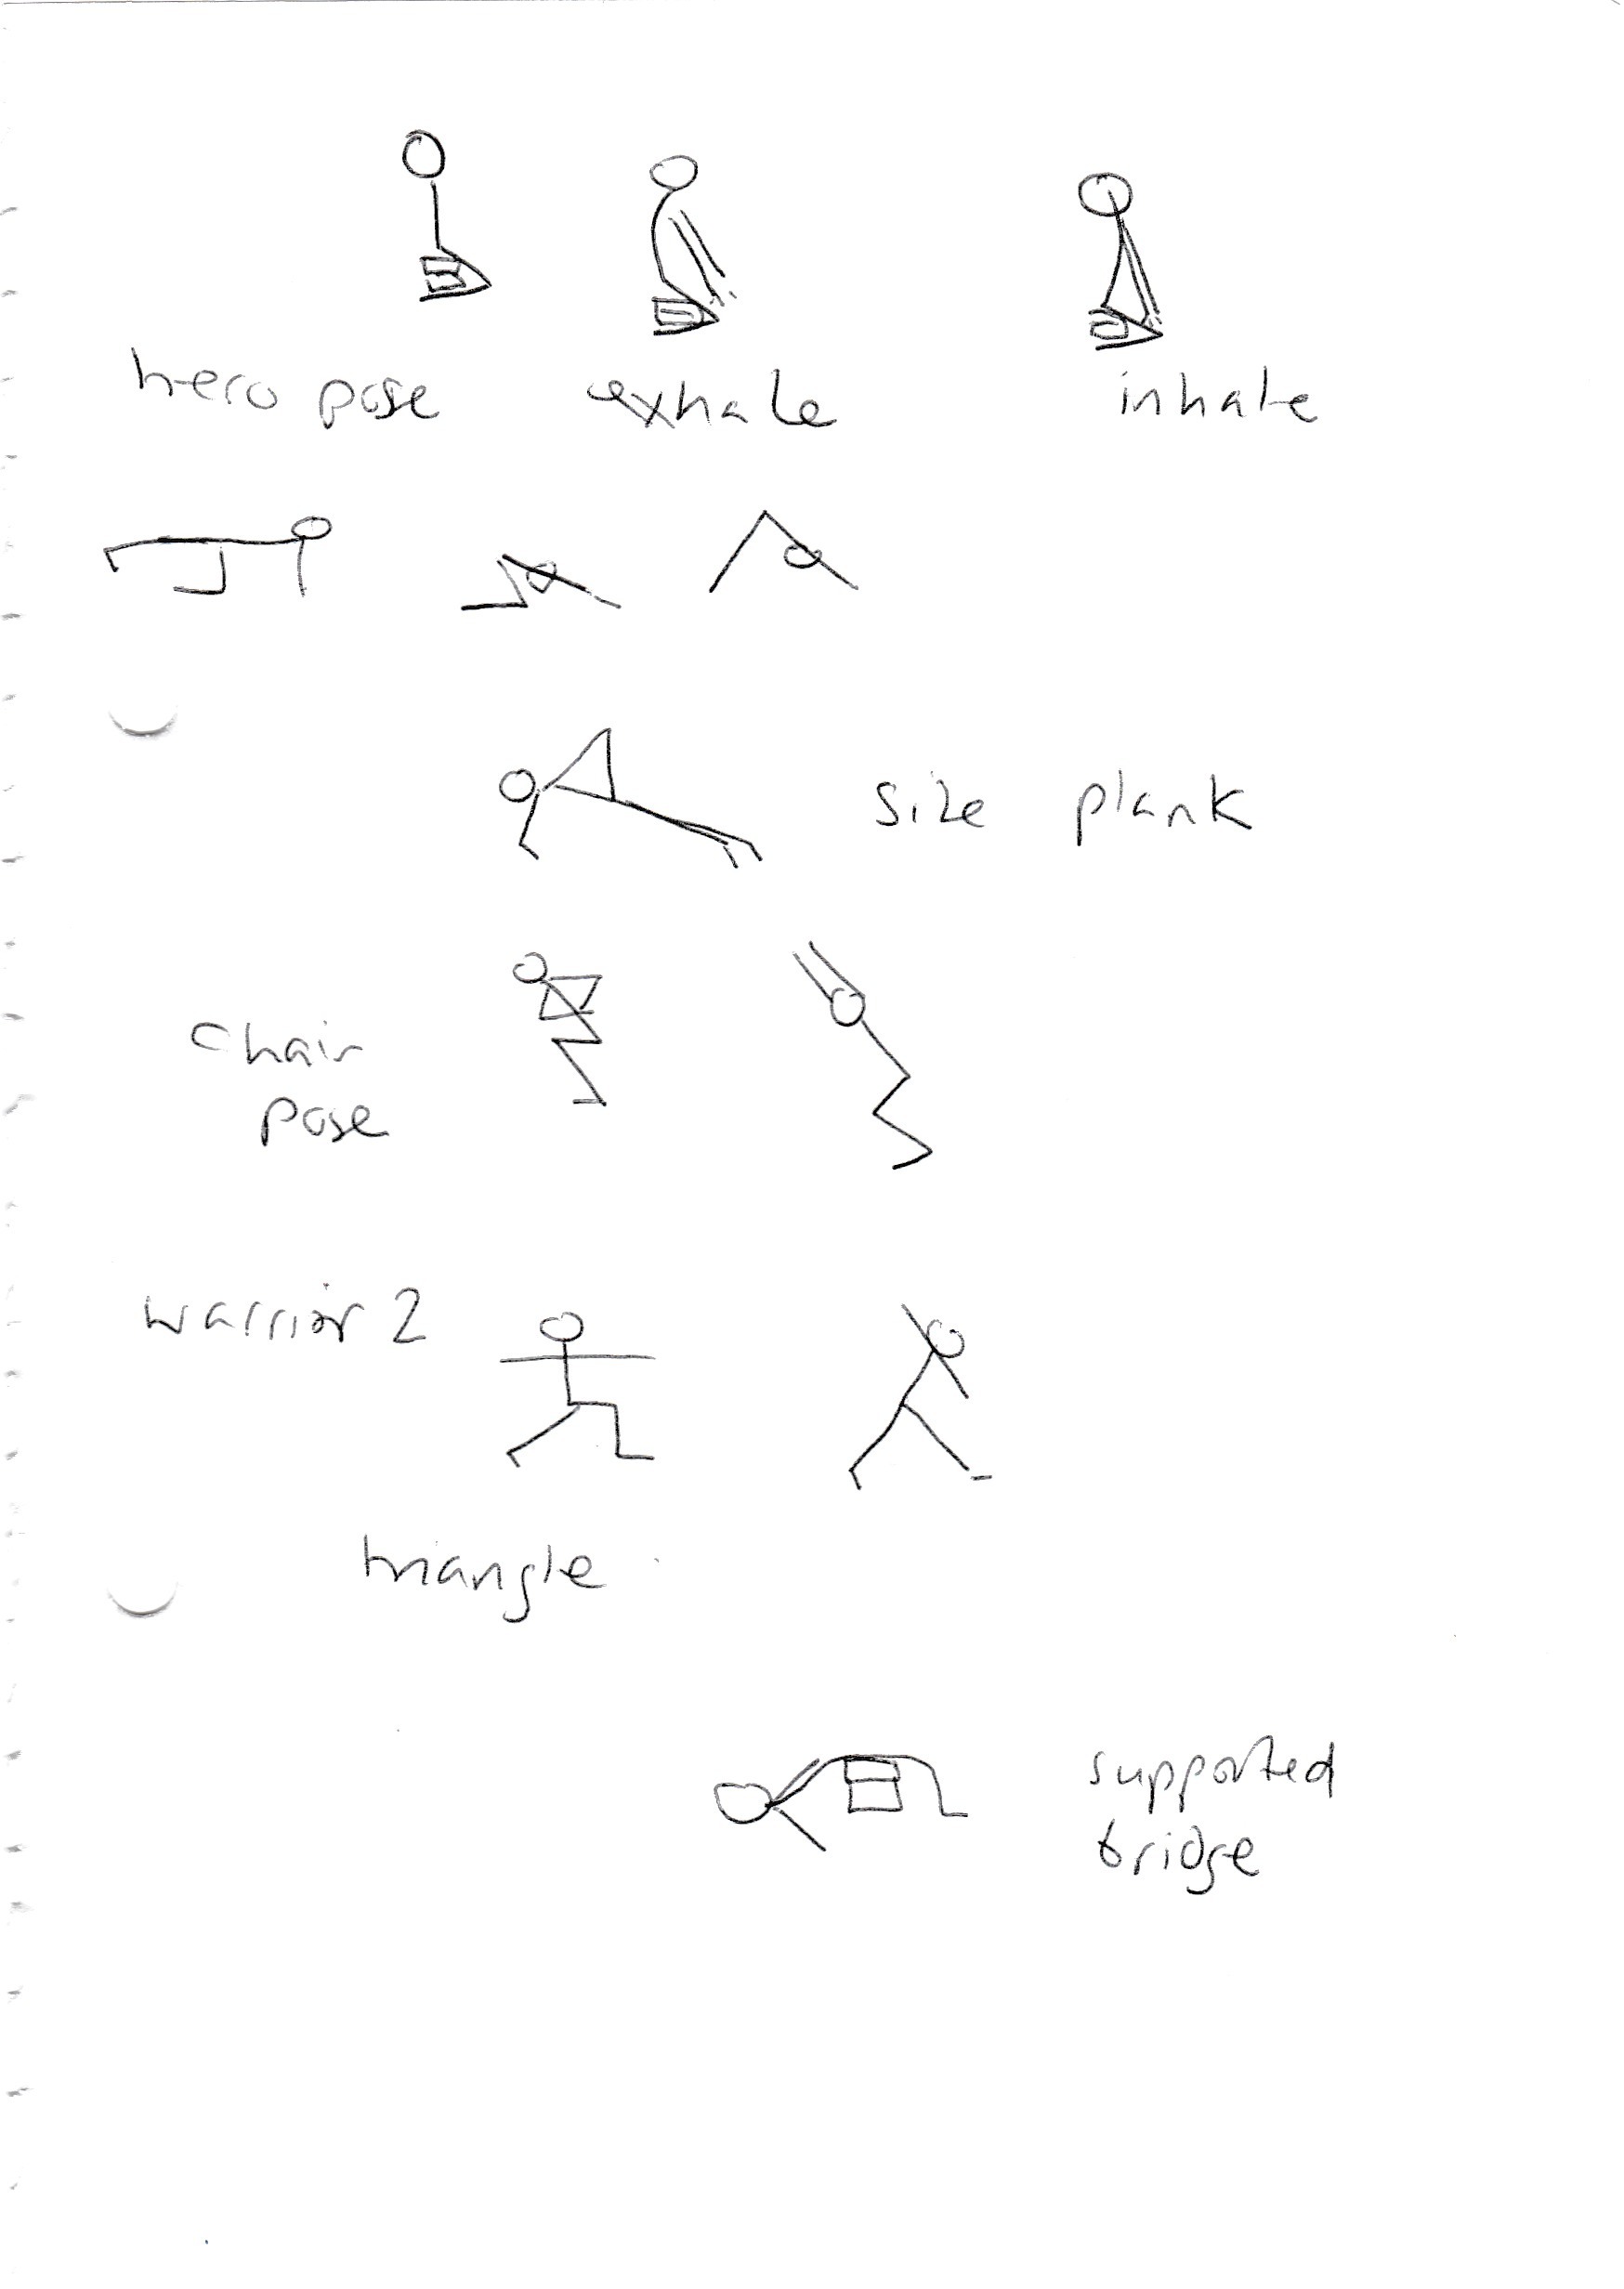 hero pose exhale inhale
size plank
chair
pose
warrior 2
triangle
supported
bridge